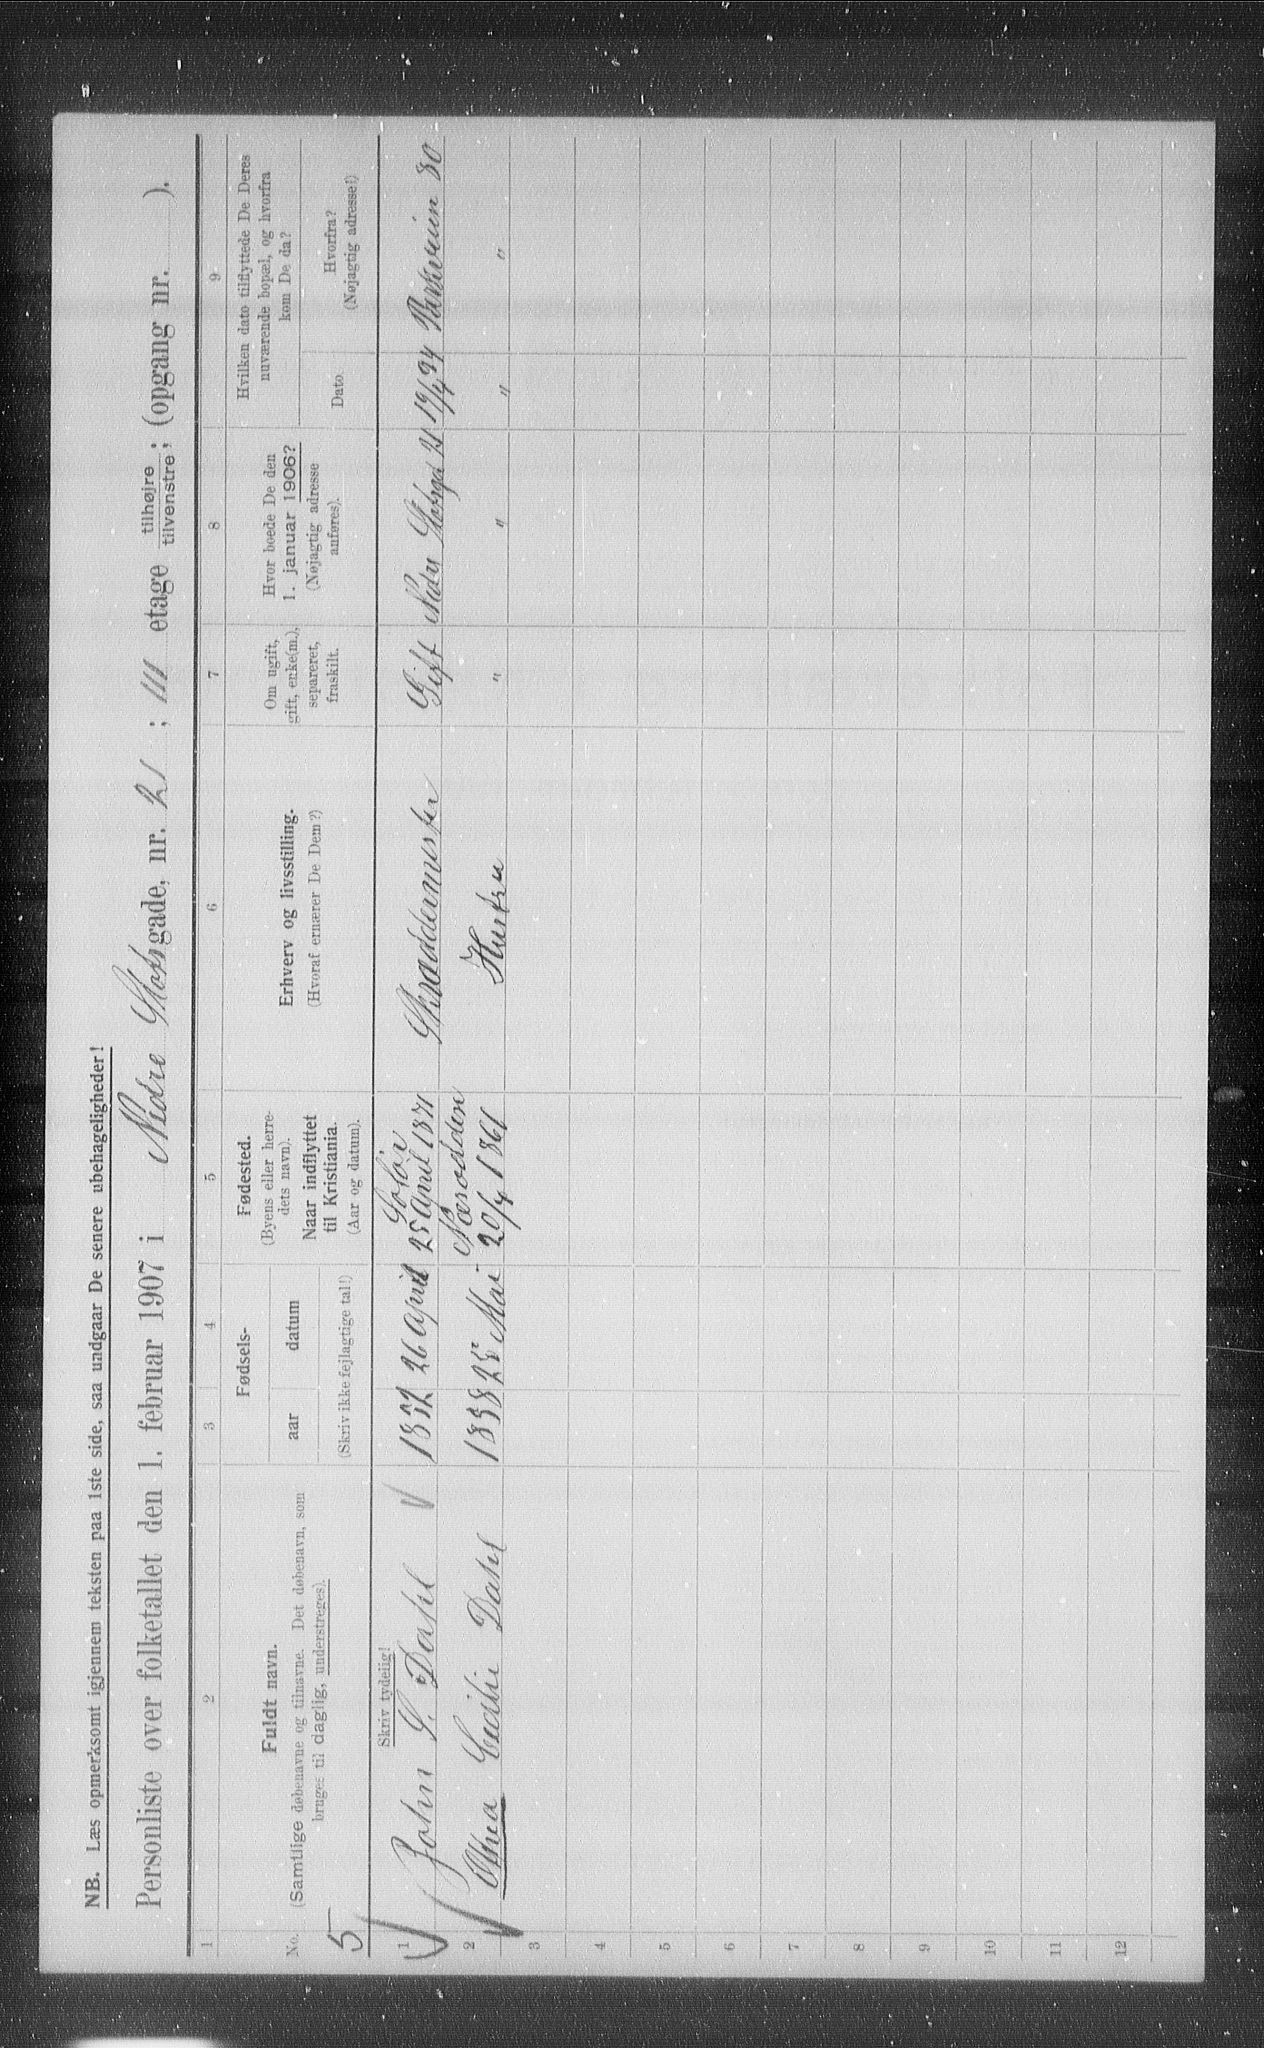 NB. Læs opmerksomt igjennem teksten paa 1ste side, saa undgaar De senere ubehageligheder!
Personliste over folketallet den 1. februar 1907 i Nedre Slotsgade, nr. 21 ; III etage tilhøjre ; (opgang nr. ).
tilvenstre
1 2 3 4 5 6 7 8 9
No.
Fuldt navn.
(Samtlige døbenavne og tilnavne. Det døbenavn, som
bruges til daglig, understreges).
Fødsels-
aar datum
(Skriv ikke fejlagtige tal!)
Fødested.
(Byens eller herre-
dets navn).
Naar indflyttet
til Kristiania.
(Aar og datum).
Erhverv og livsstilling.
(Hvoraf ernærer De Dem?)
Om ugift,
gift, enke(m.),
separeret,
fraskilt.
Hvor boede De den
1. januar 1906?
(Nøjagtig adresse
anføres).
Hvilken dato tilflyttede De Deres
nuværende bopæl, og hvorfra
kom De da?
Dato
Hvorfra?
(Nøjagtig adresse!)
5
Skriv tydelig!
Solør
1 John S. Dahl 1832 26 april 25 April 1871 Skræddermester Gift Nedr Slotsgd 21 19/4 94 Parkveien 80
Næsodden
2 Othea Cecilie Dahl 1838 25 Mai 20/4 1861 Hustru " " " "
3
4
5
6
7
8
9
10
11
12